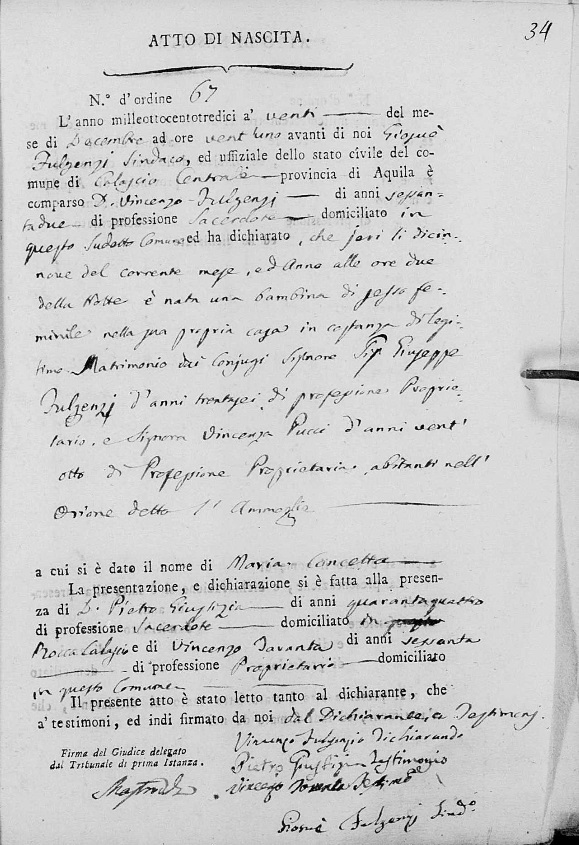 34
ATTO DI NASCITA.
N.° d'ordine 67
L'anno milleottocentotredici a' venti del me-
se di Decembre ad ore vent'uno avanti di noi Giosuè
Fulgenzj Sindaco, ed uffiziale dello stato civile del co-
mune di Calascio Centrale provincia di Aquila è
comparso D. Vincenzo Fulgenzj di anni sessan-
tadue di professione Sacerdote domiciliato in
questo sudetto Comune ed ha dichiarato, che jeri li dicin-
nove del corrente mese, ed Anno alle ore due
della Notte è nata una bambina di sesso fe-
minile nella sua propria casa in costanza di legi-
timo Matrimonio dai Conjugi Signore Giuseppe
Fulgenzj d'anni trentasei di professione Proprie-
tario, e Signora Vincenza Pucci d'anni vent'
otto di Professione Proprietaria, abitanti nell'
Orione detto l'
a cui si è dato il nome di Maria Concetta
La presentazione, e dichiarazione si è fatta alla presen-
za di D. Pietro Giustizia di anni quarantaquattro
di professione Sacerdote domiciliato in
Rocca Calascio e di Vincenzo Taranta di anni sessanta
di professione Proprietario domiciliato
in questo Comune
Il presente atto è stato letto tanto al dichiarante, che
a' testimoni, ed indi firmato da noi dal Dichiarante, e Testimonj.
Vincenzo Fulgenzio Dichiarando
Firma del Giudice delegato
dal Tribunale di prima Istanza.
Pietro Giustizia Testimonio
Vincenzo Taranta
Giosuè Fulgenzj Sind.°